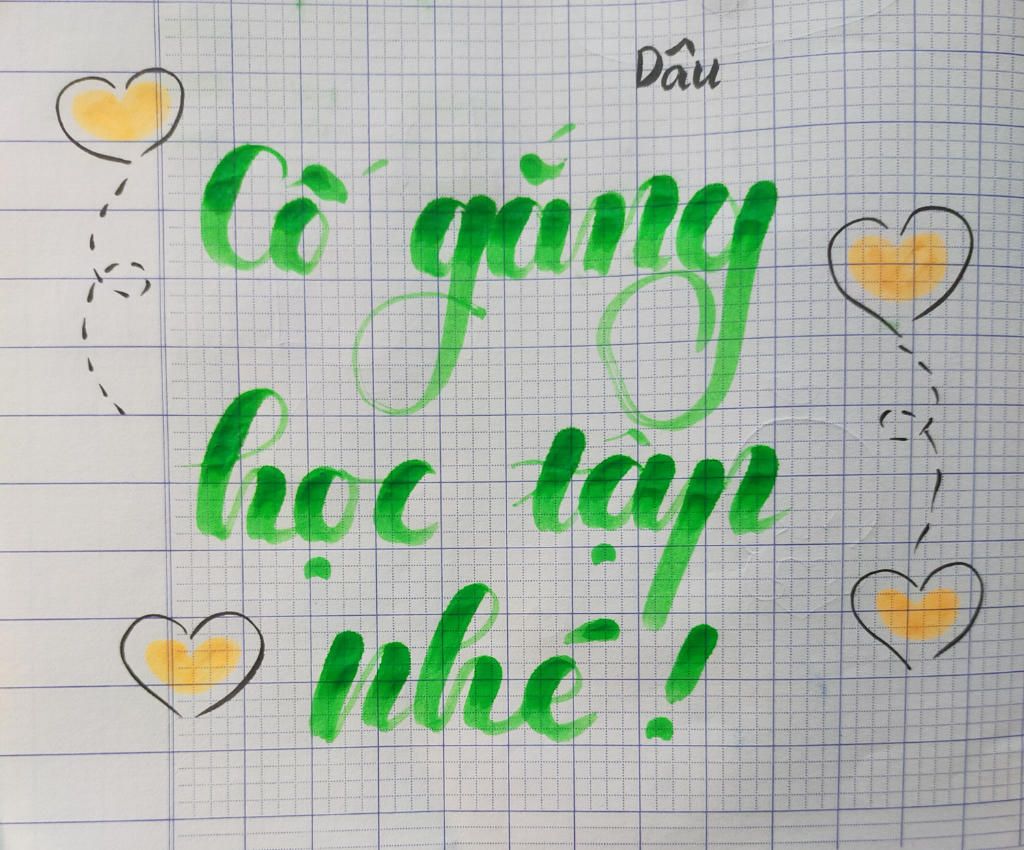 Dâu
Cố gắng
học tập
nhé!